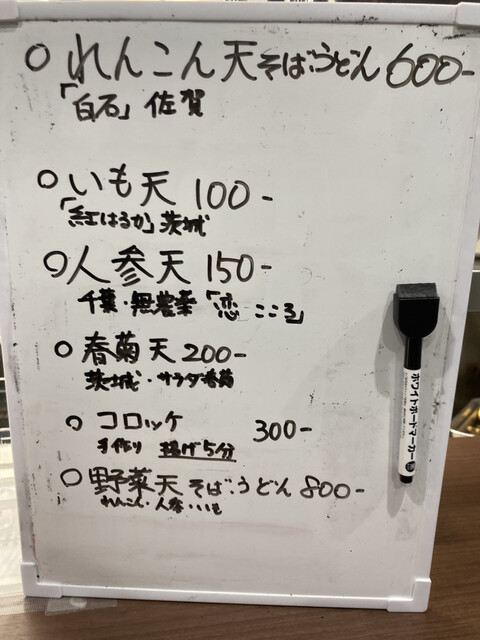 ○ れんこん天そば、うどん 600-
「白石」佐賀
○ いも天 100-
「紅はるか」茨城
○ 人参天 150-
千葉・無農薬「恋ごころ」
○ 春菊天 200-
茨城・サラダ春菊
○ コロッケ 300-
手作り 揚げ5分
○ 野菜天そば、うどん 800-
れんこん・人参・いも
ホワイトボードマーカー